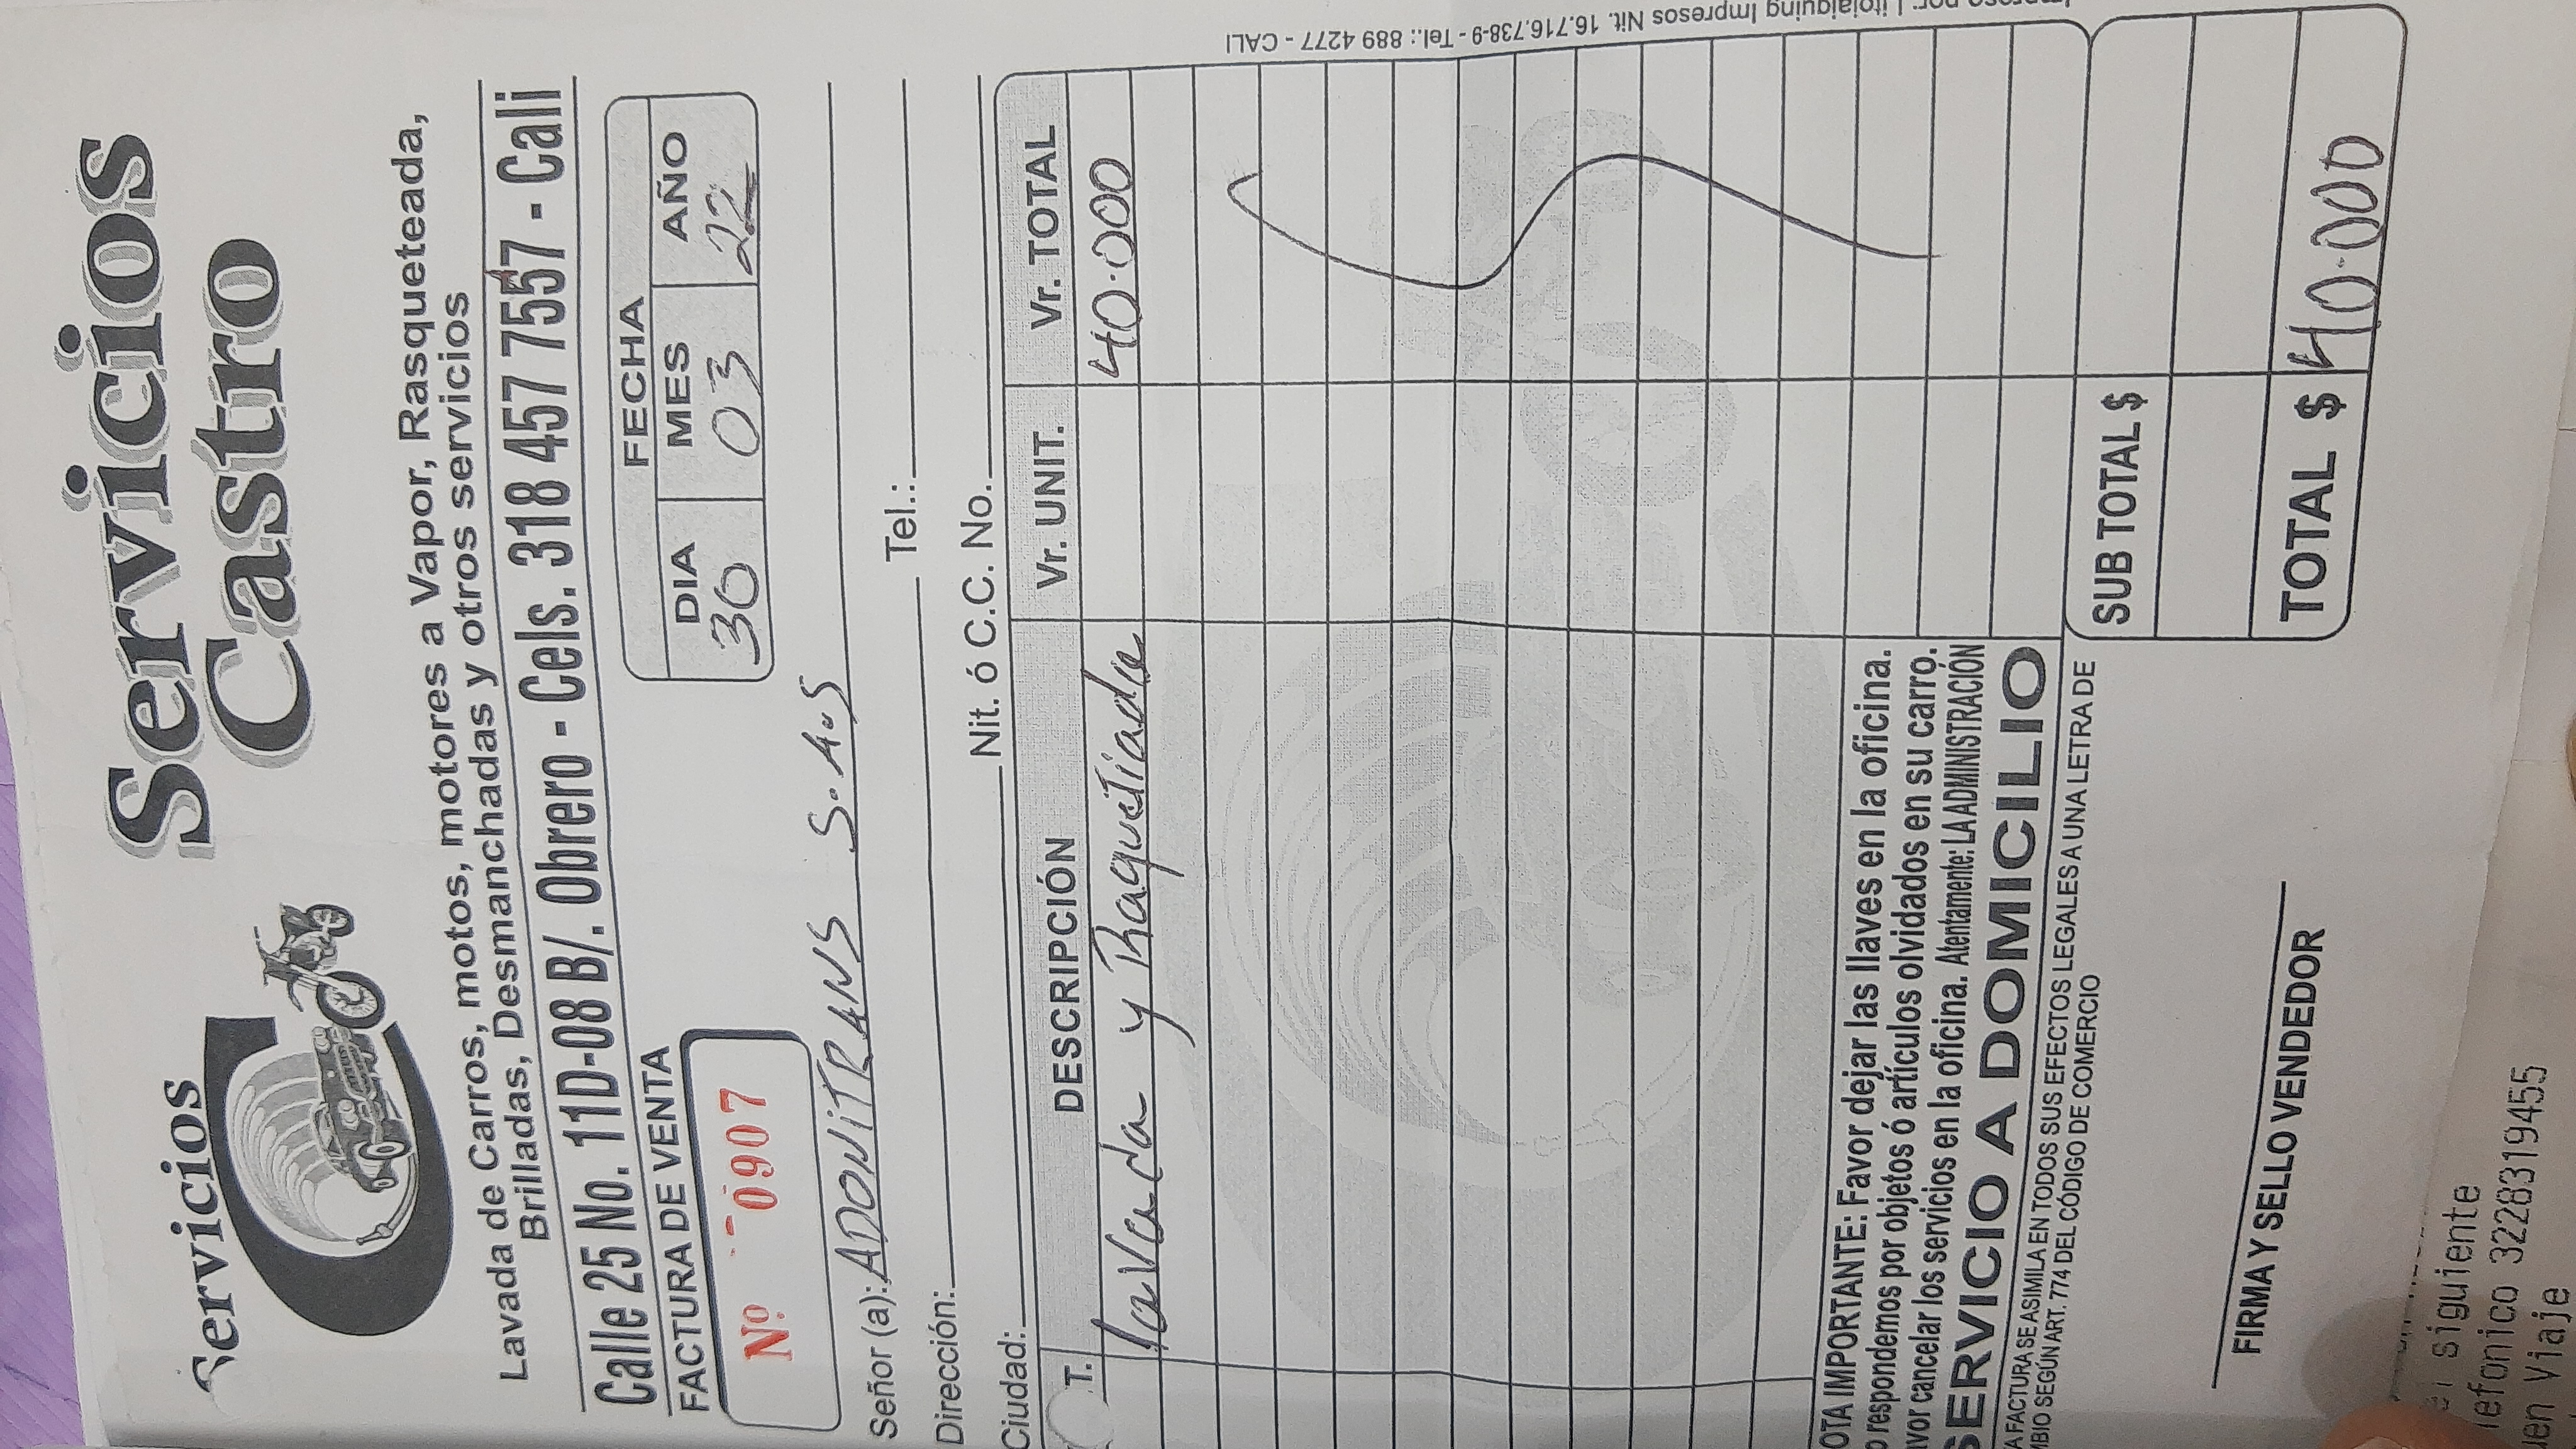 Servicios
Servicios
Castro
Lavada de Carros, motos, motores a Vapor, Rasqueteada,
Brilladas, Desmanchadas y otros servicios
Calle 25 No. 11D-08 B/. Obrero - Cels. 318 457 7557 - Cali
FACTURA DE VENTA
Nº 0907
FECHA
DIA MES AÑO
30 03 22
Señor (a): ADONITRANS S.A.S
Dirección: Tel.:
Ciudad: Nit. ó C.C. No.
T. DESCRIPCIÓN Vr. UNIT. Vr. TOTAL
lavada y Raquetiada 40.000
OTA IMPORTANTE: Favor dejar las llaves en la oficina.
o respondemos por objetos ó artículos olvidados en su carro.
avor cancelar los servicios en la oficina. Atentamente: LA ADMINISTRACIÓN
SERVICIO A DOMICILIO
A FACTURA SE ASIMILA EN TODOS SUS EFECTOS LEGALES A UNA LETRA DE
MBIO SEGÚN ART. 774 DEL CÓDIGO DE COMERCIO
SUB TOTAL $
TOTAL $ 40.000
FIRMA Y SELLO VENDEDOR
Impreso por: Litojaiguing Impresos Nit. 16.716.738-9 - Tel.: 889 4277 - CALI
siguiente
lefonico 3228319455
uen Viaje